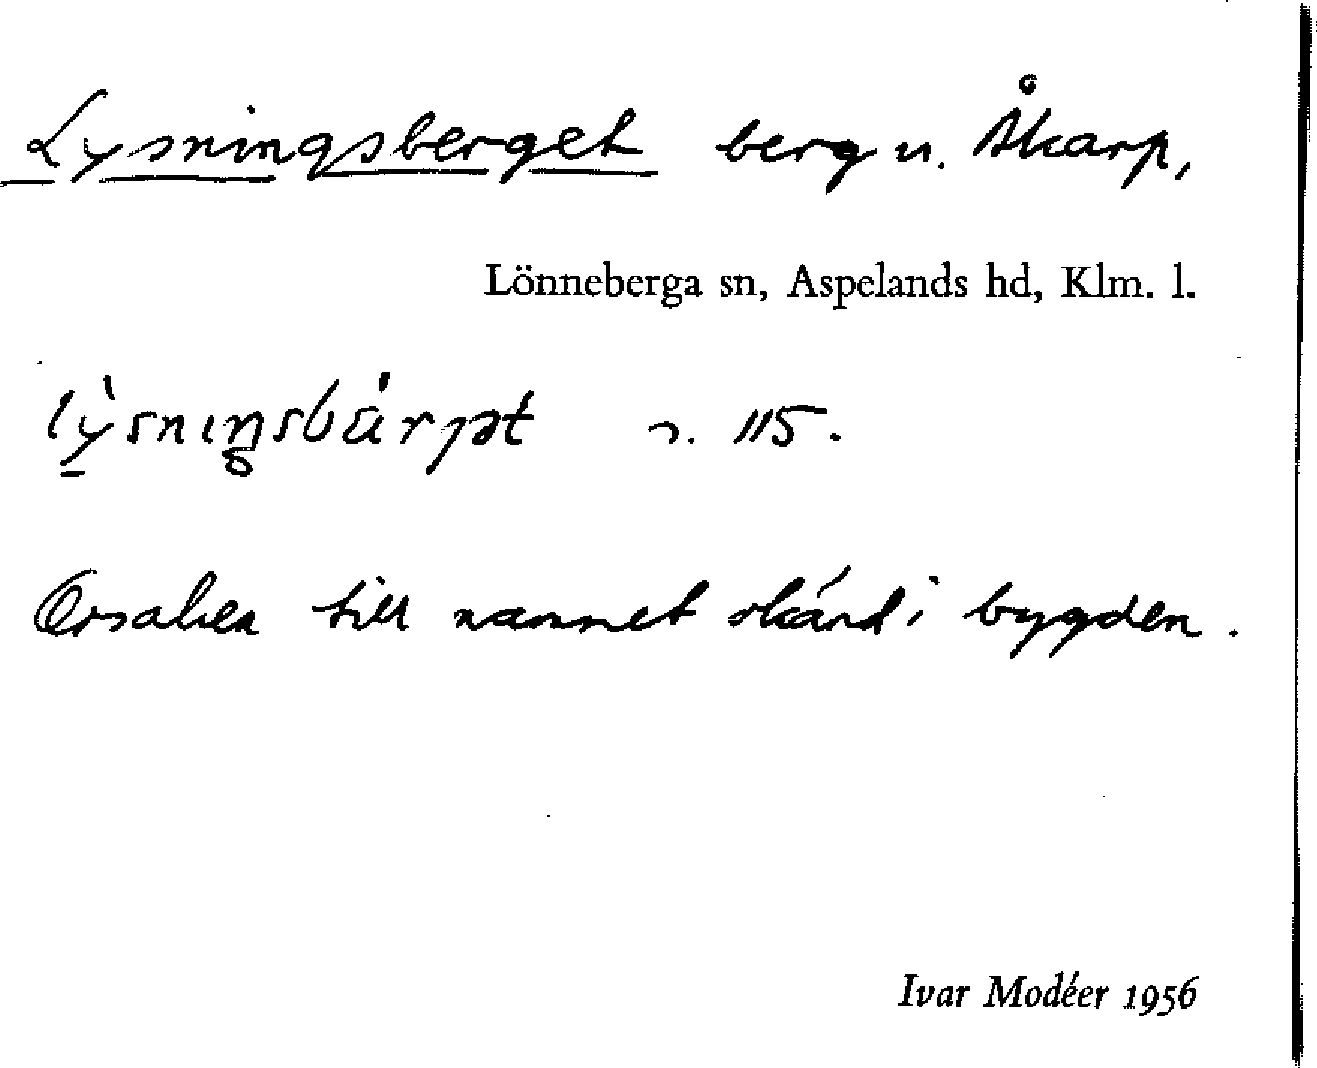 Lysningsberget berg u. Åkarp,
Lönneberga sn, Aspelands hd, Klm. l.
lỳsniŋsbärjət n. 115.
Orsaken till namnet okänd i bygden.
Ivar Modéer 1956